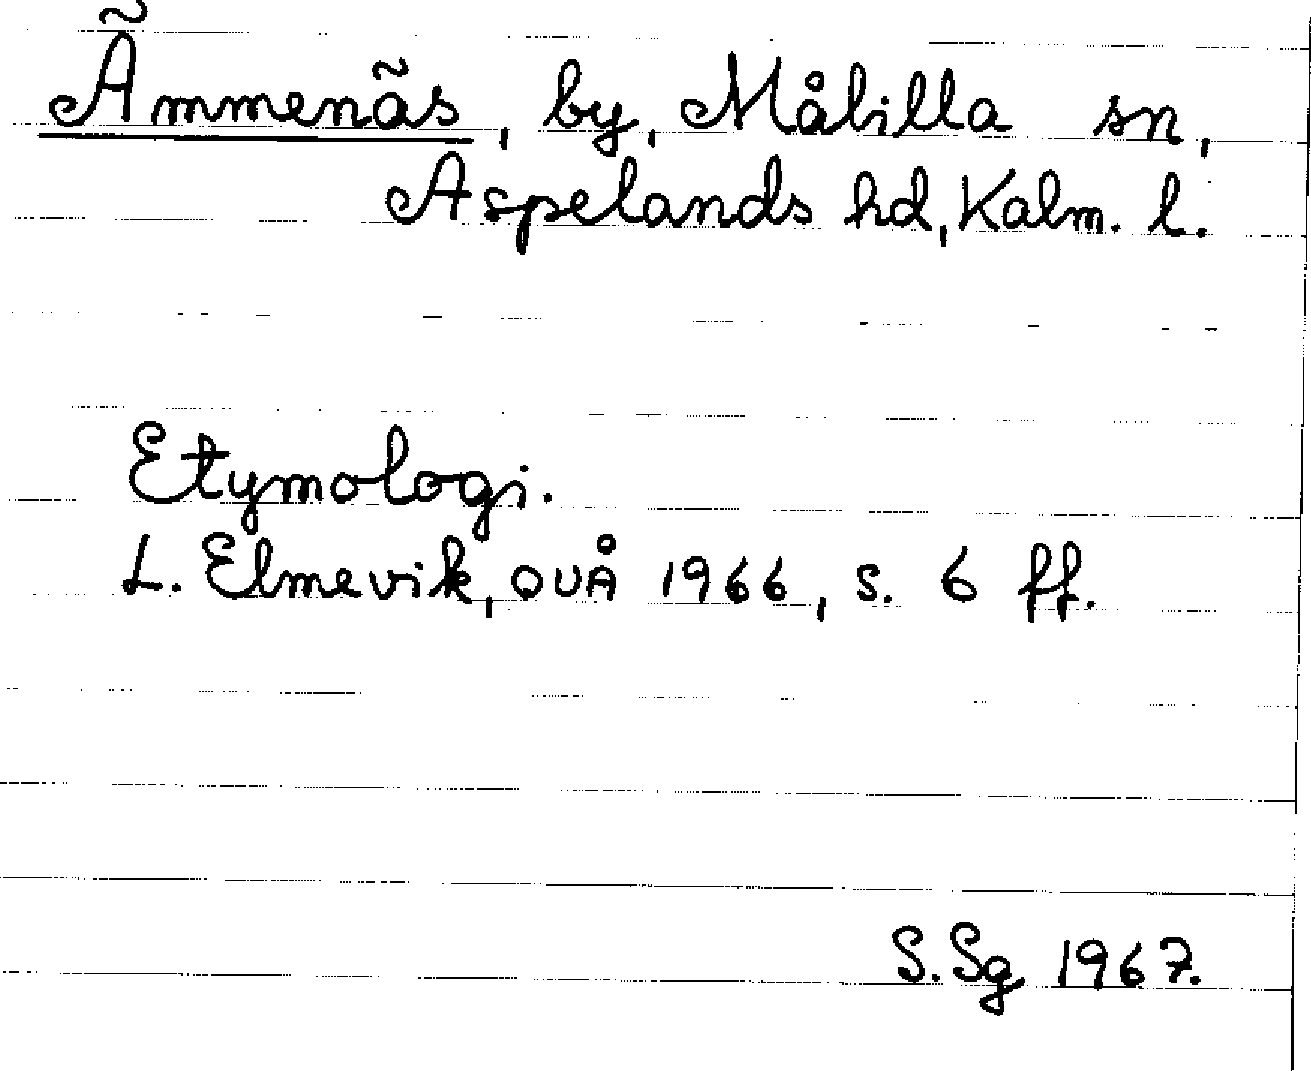 Ämmenäs, by, Målilla sn,
Aspelands hd, Kalm. l.
Etymologi.
L. Elmevik, OUÅ 1966, s. 6 ff.
S.Sg 1967.